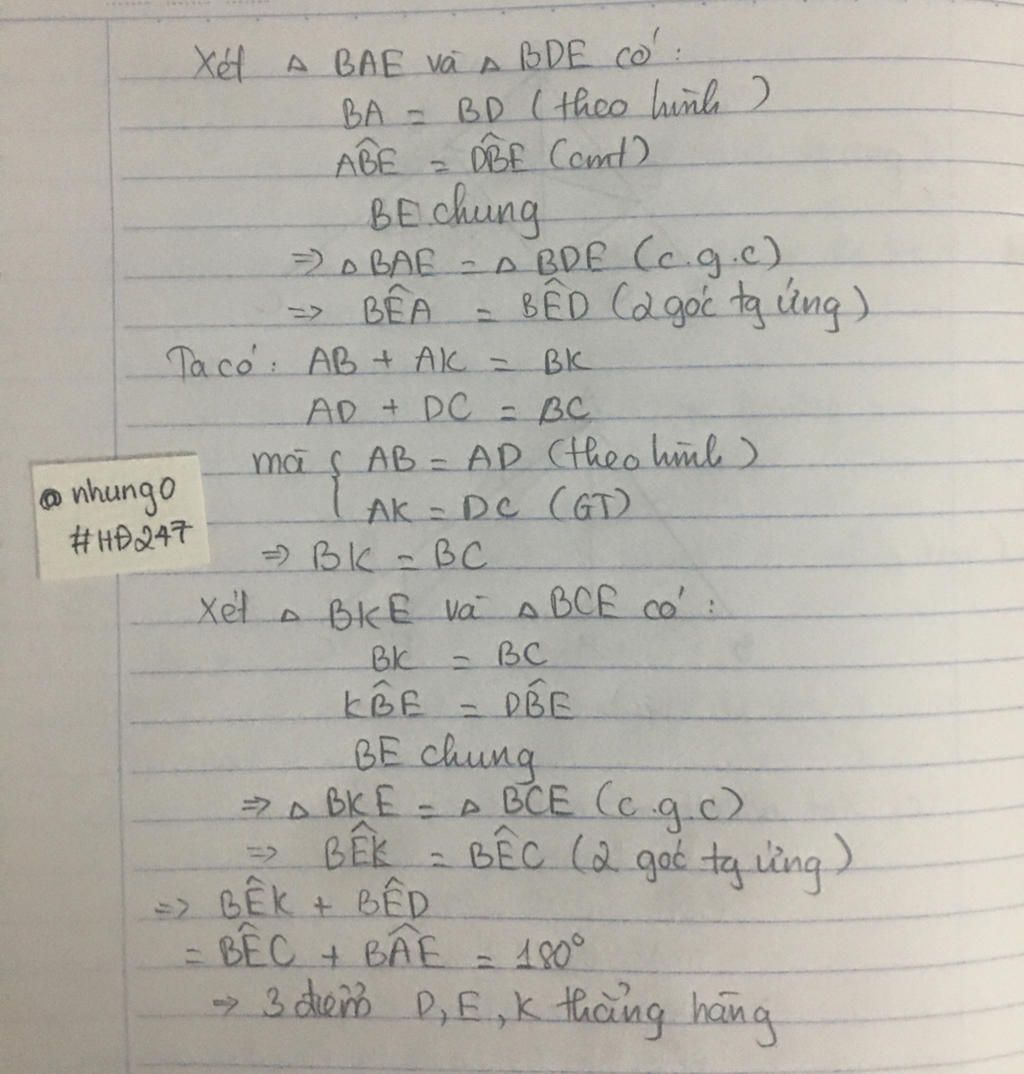 Xét △ BAE và △ BDE có:
BA = BD (theo hình)
AB̂E = DB̂E (cmt)
BE chung
=> △ BAE = △ BDE (c.g.c)
=> BÊA = BÊD (2 góc tg ứng)
Ta có: AB + AK = BK
AD + DC = BC
mà { AB = AD (theo hình)
AK = DC (GT)
=> BK = BC
@nhung0
#HĐ247
Xét △ BKE và △ BCE có:
BK = BC
KB̂E = DB̂E
BE chung
=> △ BKE = △ BCE (c.g.c)
=> BÊK = BÊC (2 góc tg ứng)
=> BÊK + BÊD
= BÊC + BÂE = 180°
=> 3 điểm D, E, K thẳng hàng